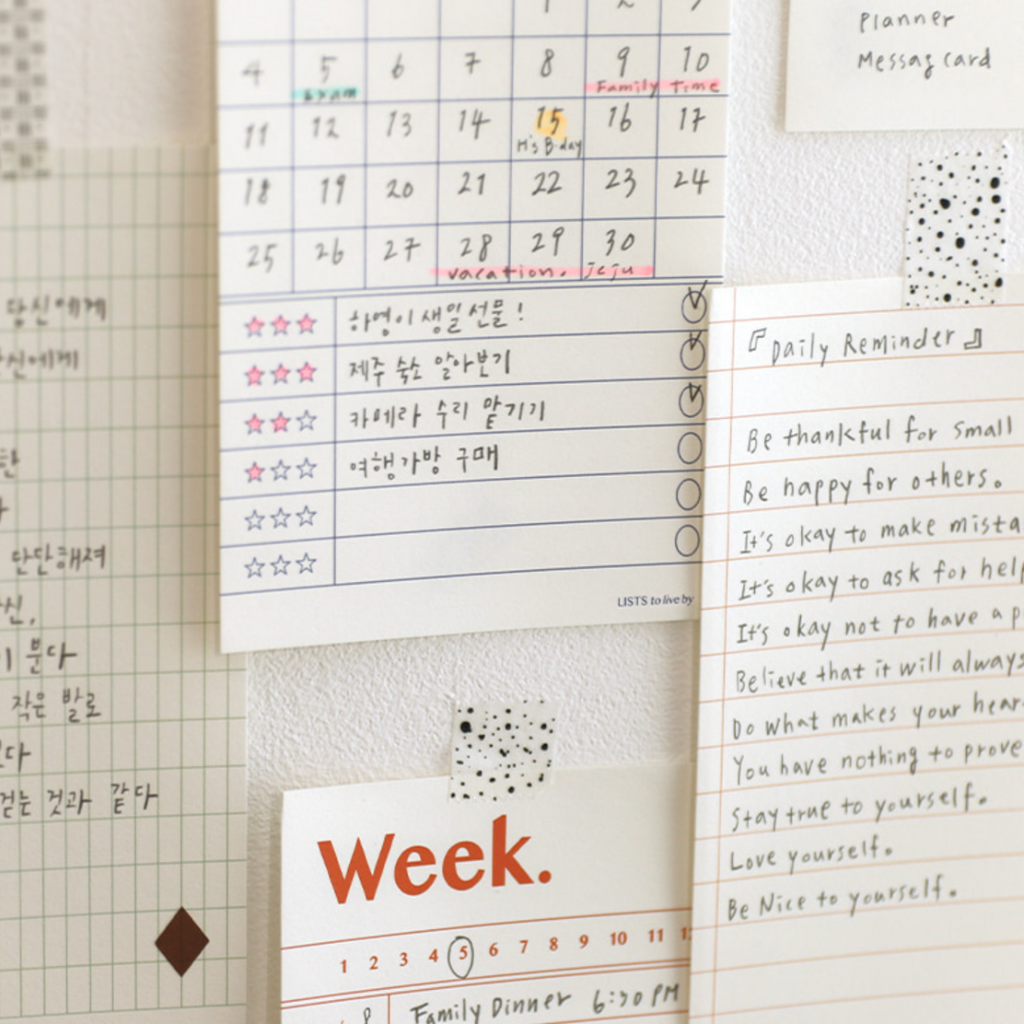 당신에게
단단해져
분다
작은 발로
걷는 것과 같다
4 5 6 7 8 9 10
exam Family Time
11 12 13 14 15 16 17
H's B-day
18 19 20 21 22 23 24
25 26 27 28 29 30
vacation. jeju
하영이 생일 선물!
제주 숙소 알아보기
카메라 수리 맡기기
여행가방 구매
LISTS to live by
Week.
1 2 3 4 5 6 7 8 9 10 11
Family Dinner 6:30 PM
Planner
Messag card
『Daily Reminder』
Be thankful for small
Be happy for others.
It's okay to make
It's okay to ask for help
It's okay not to have a
Believe that it will always
Do what makes your
You have nothing to prove
Stay true to yourself.
Love yourself.
Be Nice to yourself.